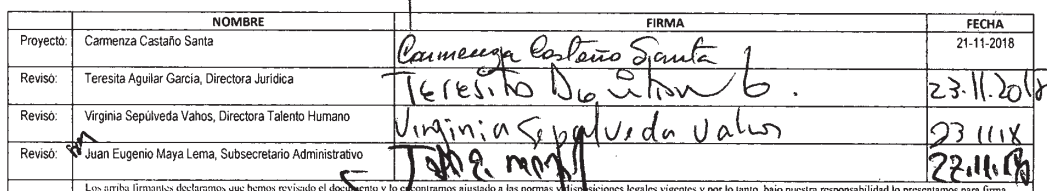 NOMBRE FIRMA FECHA
Proyectó: Carmenza Castaño Santa Carmenza Castaño Santa 21-11-2018
Revisó: Teresita Aguilar García, Directora Jurídica Teresita 23.11.2018
Revisó: Virginia Sepúlveda Vahos, Directora Talento Humano Virginia Sepulveda Vahos 23 11 18
Revisó: Juan Eugenio Maya Lema, Subsecretario Administrativo 22.11.18
Los arriba firmantes declaramos que hemos revisado el documento y lo encontramos ajustado a las normas y disposiciones legales vigentes y por lo tanto, bajo nuestra responsabilidad lo presentamos para firma